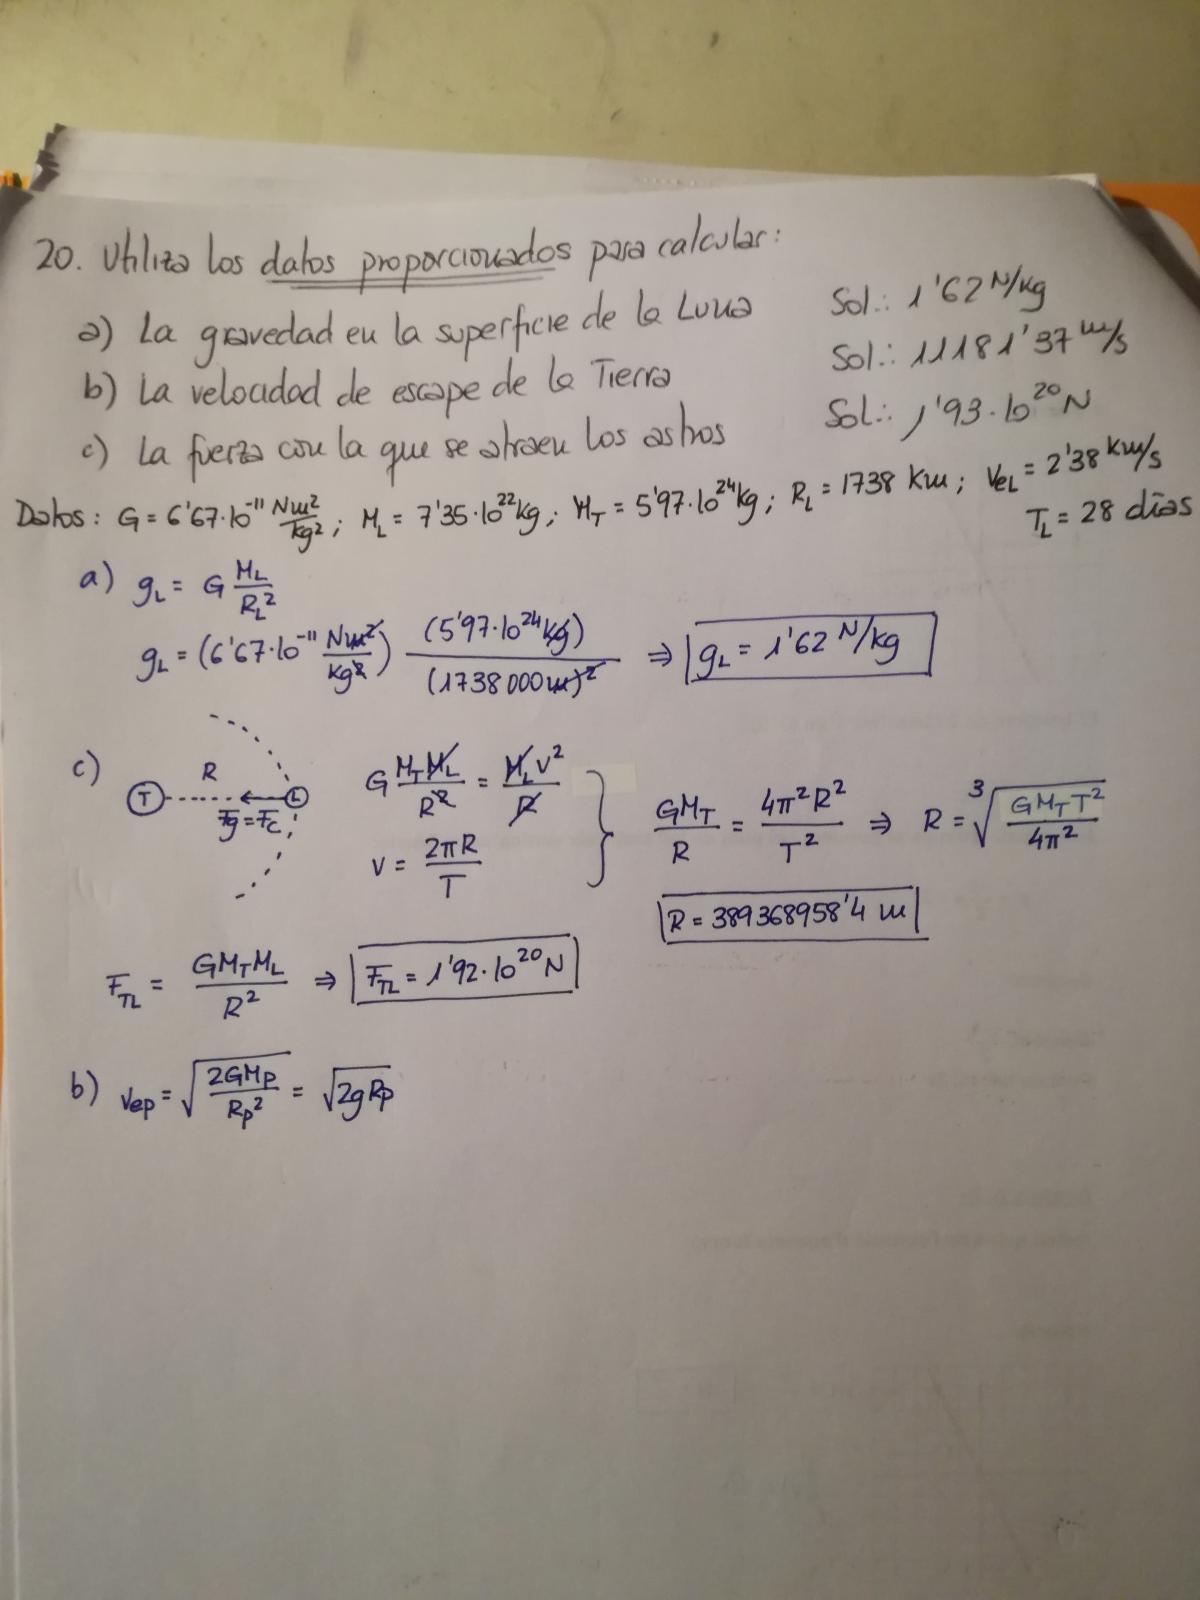 20. Utiliza los datos proporcionados para calcular:
a) La gravedad en la superficie de la Luna Sol.: 1'62 N/kg
b) La velocidad de escape de la Tierra Sol.: 11181'37 m/s
c) La fuerza con la que se atraen los astros Sol.: 1'93·10²⁰ N
Datos: G = 6'67·10⁻¹¹ Nm²/kg²; M_L = 7'35·10²² kg; M_T = 5'97·10²⁴ kg; R_L = 1738 Km; V_eL = 2'38 km/s
T_L = 28 días
a) g_L = G M_L/R_L²
g_L = (6'67·10⁻¹¹ Nm²/kg²) (5'97·10²⁴ kg)/(1738000 m)² ⇒ g_L = 1'62 N/kg
c) T R L F_g = F_c G M_T M_L/R² = M_L v²/R
v = 2πR/T
GM_T/R = 4π²R²/T² ⇒ R = ∛(GM_T T²/4π²)
R = 389368958'4 m
F_TL = GM_T M_L/R² ⇒ F_TL = 1'92·10²⁰ N
b) v_ep = √(2GM_p/R_p²) = √(2gR_p)